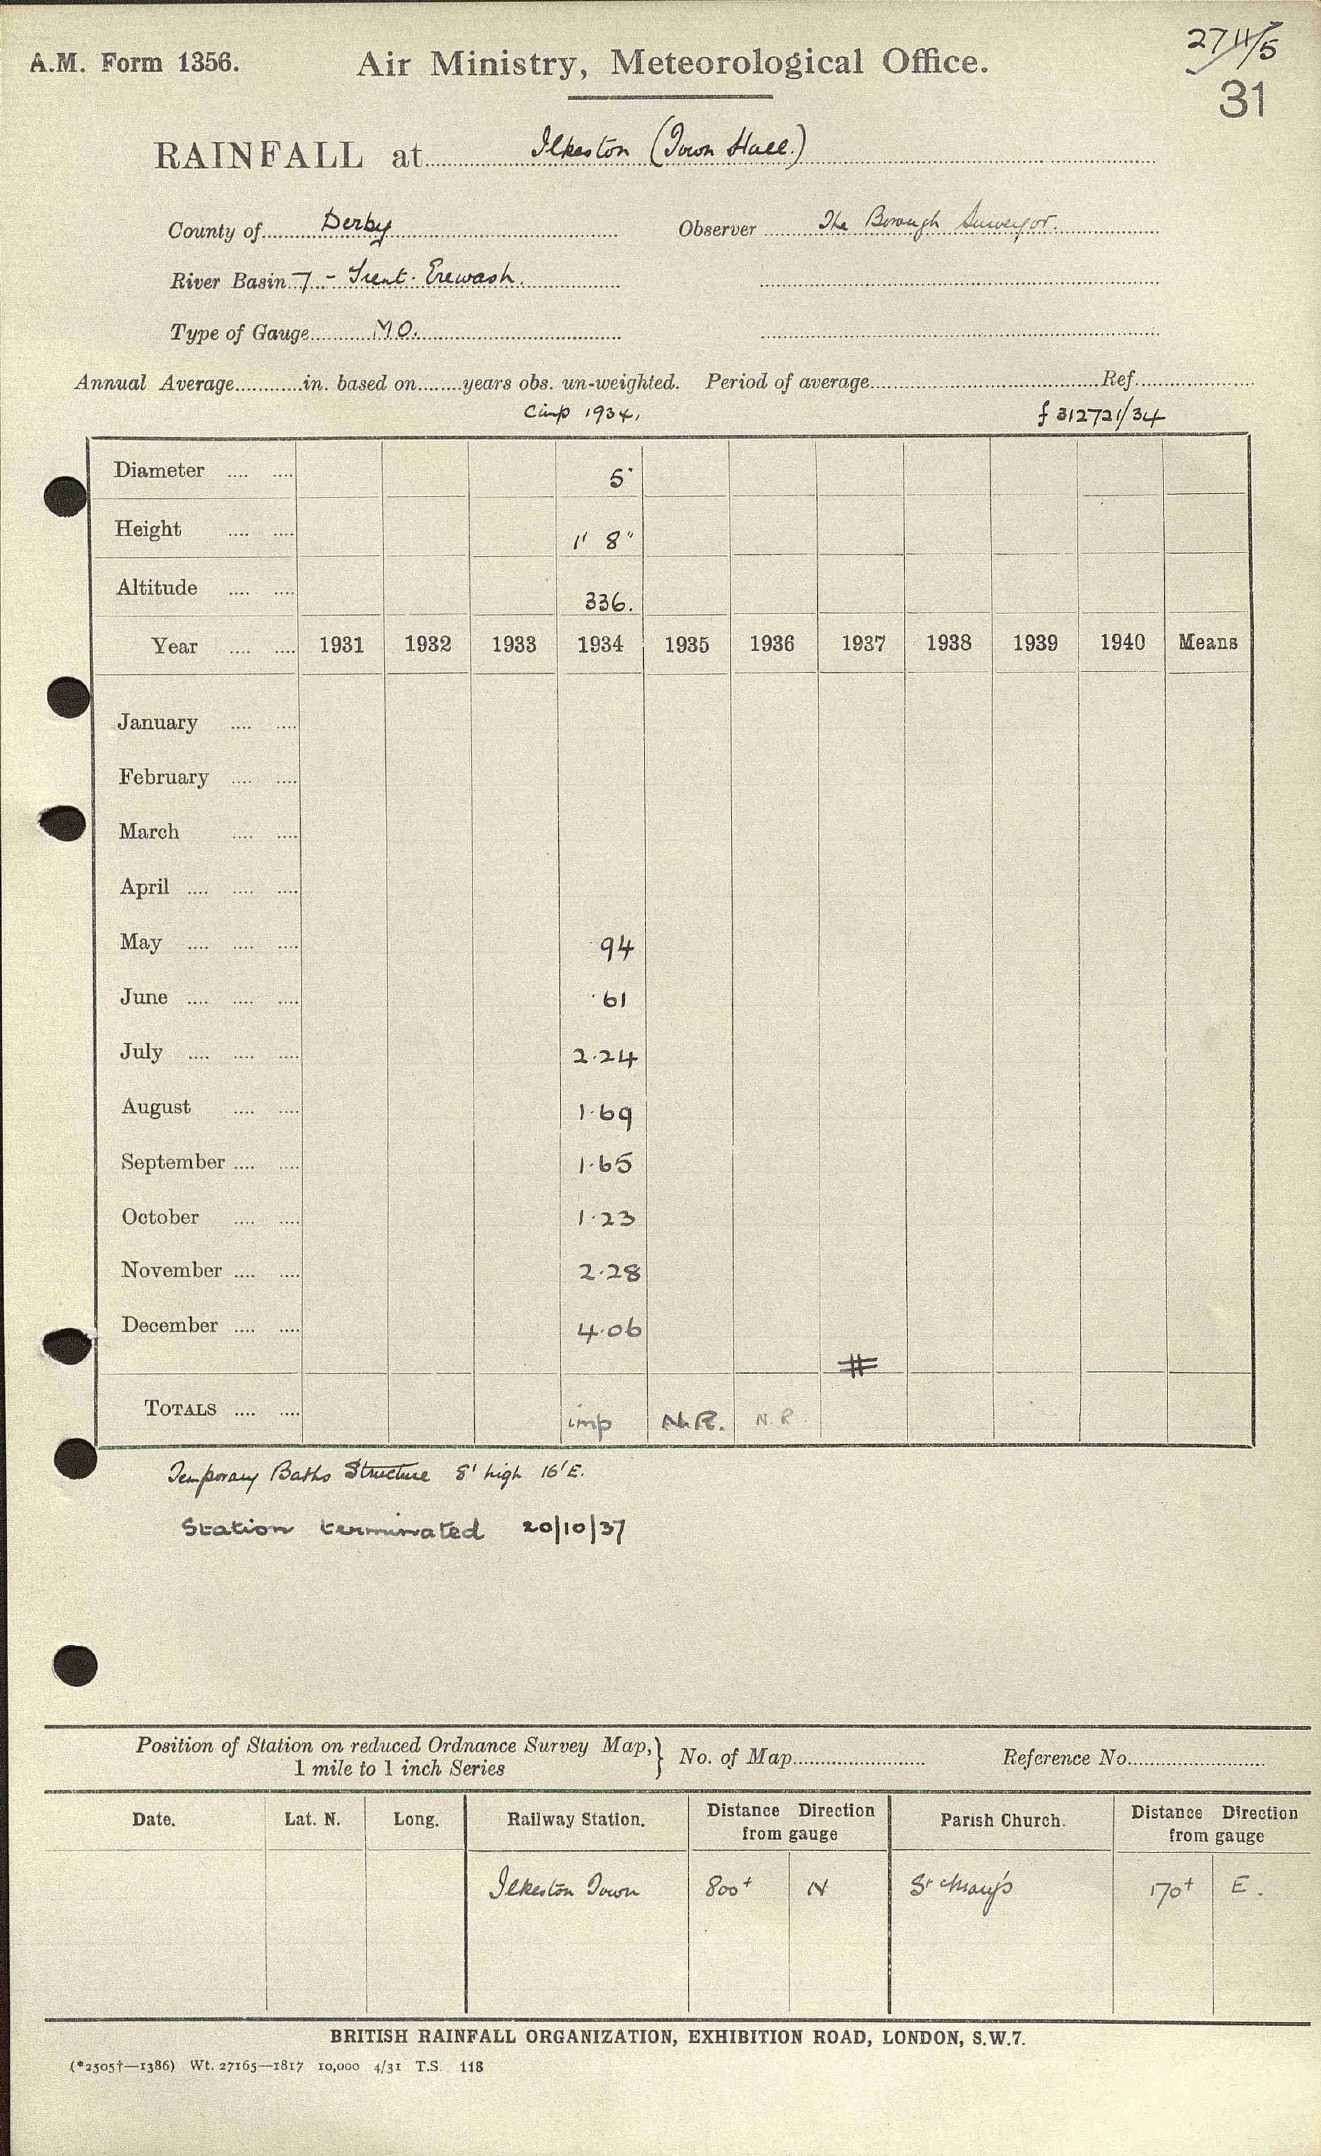 A.M. Form 1356. Air Ministry, Meteorological Office. 2711/5
31
RAINFALL at Ilkeston (Town Hall.)
County of Derby Observer The Borough Surveyor.
River Basin 7 - Trent. Erewash.
Type of Gauge M O.
Annual Average............in. based on........years obs. un-weighted. Period of average.......... Ref..........
1934. f 312721/34
Diameter .... .... 5"
Height .... .... 1' 8"
Altitude .... .... 336.
Year .... .... 1931 1932 1933 1934 1935 1936 1937 1938 1939 1940 Means
January .... ....
February .... ....
March .... ....
April .... .... ....
May .... .... .... 94
June .... .... .... ·61
July .... .... .... 2·24
August .... .... 1·69
September .... .... 1·65
October .... .... 1·23
November .... .... 2·28
December .... .... 4·06
TOTALS .... .... imp N.R. N.R.
Temporary Baths Structure 8' high 16' E.
Station terminated 20/10/37
Position of Station on reduced Ordnance Survey Map, 1 mile to 1 inch Series } No. of Map.......... Reference No..........
Date. Lat. N. Long. Railway Station. Distance Direction from gauge Parish Church. Distance Direction from gauge
Ilkeston Town 800+ N St Mary's 170+ E.
BRITISH RAINFALL ORGANIZATION, EXHIBITION ROAD, LONDON, S.W.7.
(*2505†—1386) Wt. 27165—1817 10,000 4/31 T.S. 118